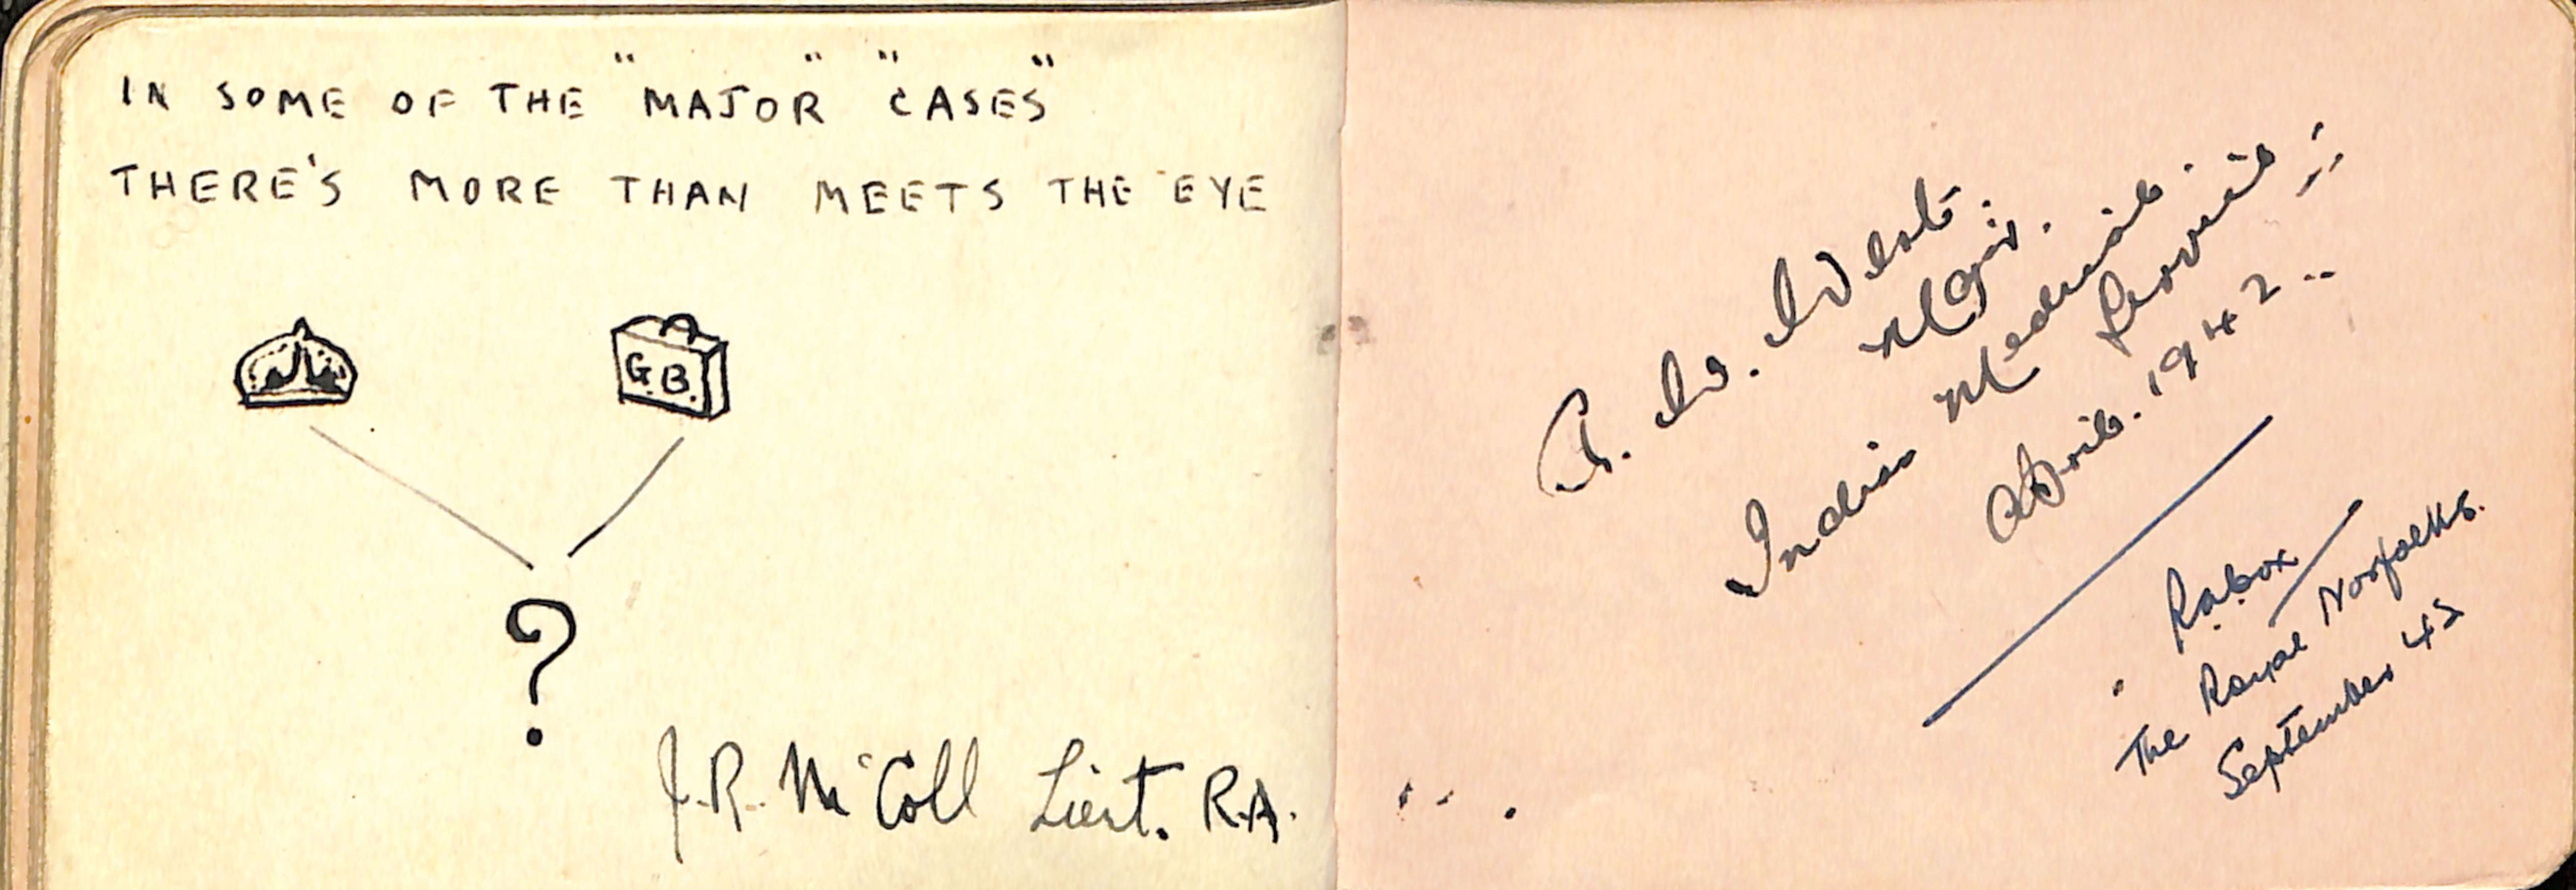 IN SOME OF THE "MAJOR" "CASES"
THERE'S MORE THAN MEETS THE EYE
G.B.
?
J.R. McColl Lieut. R.A.
A. W. West.
Major.
Indian Medical
Service
April. 1942
The Royal Norfolks.
September 42